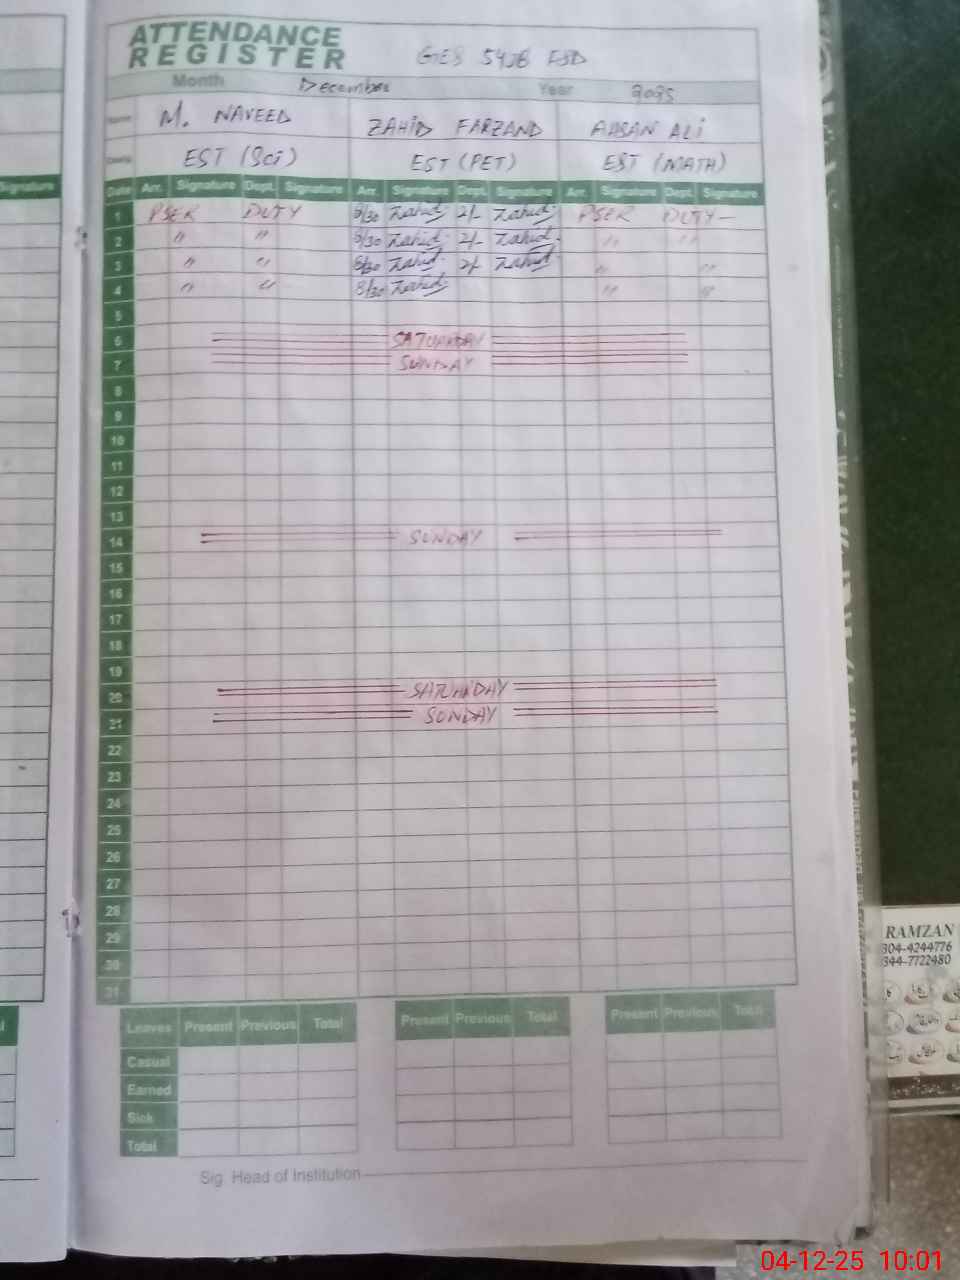 ATTENDANCE
REGISTER
GES 54JB FSD
Month December Year 2025
Name M. NAVEED ZAHID FARZAND AHSAN ALI
EST (Sci) EST (PET) EST (MATH)
Date Arr. Signature Dept. Signature Arr. Signature Dept. Signature Arr. Signature Dept. Signature
1 PSER DUTY 8/30 Zahid 2/- Zahid PSER DUTY
2 〃 〃 8/30 Zahid 2/- Zahid 〃 〃
3 〃 〃 8/30 Zahid 2/- Zahid 〃 〃
4 〃 〃 8/30 Zahid 〃 〃
5
6 SATURDAY
7 SUNDAY
8
9
10
11
12
13
14 SUNDAY
15
16
17
18
19
20 SATURDAY
21 SUNDAY
22
23
24
25
26
27
28
29
30
31
Leaves Present Previous Total Present Previous Total Present Previous Total
Casual
Earned
Sick
Total
Sig. Head of Institution
Signature
RAMZAN
304-4244776
344-7722480
04-12-25 10:01